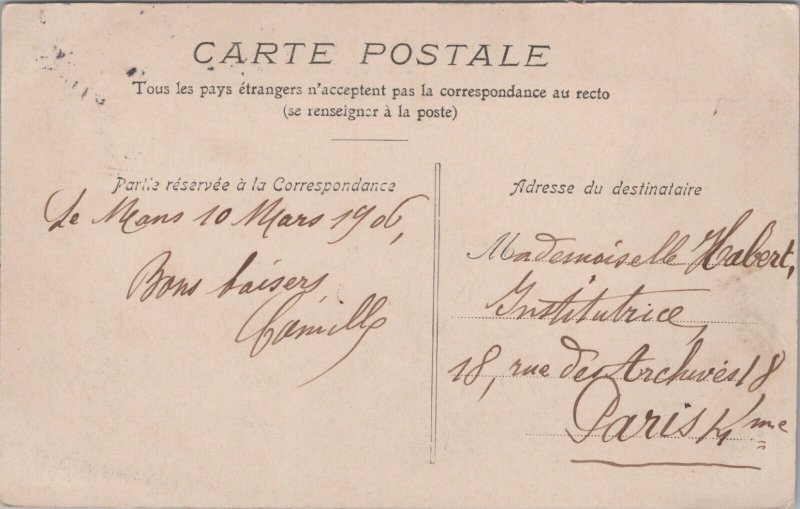 CARTE POSTALE
Tous les pays étrangers n'acceptent pas la correspondance au recto
(se renseigner à la poste)
Partie réservée à la Correspondance
Le Mans 10 Mars 1906,
Bons baisers
Camille
Adresse du destinataire
Mademoiselle Habert,
Institutrice,
18, rue des Archives 18
Paris 4me